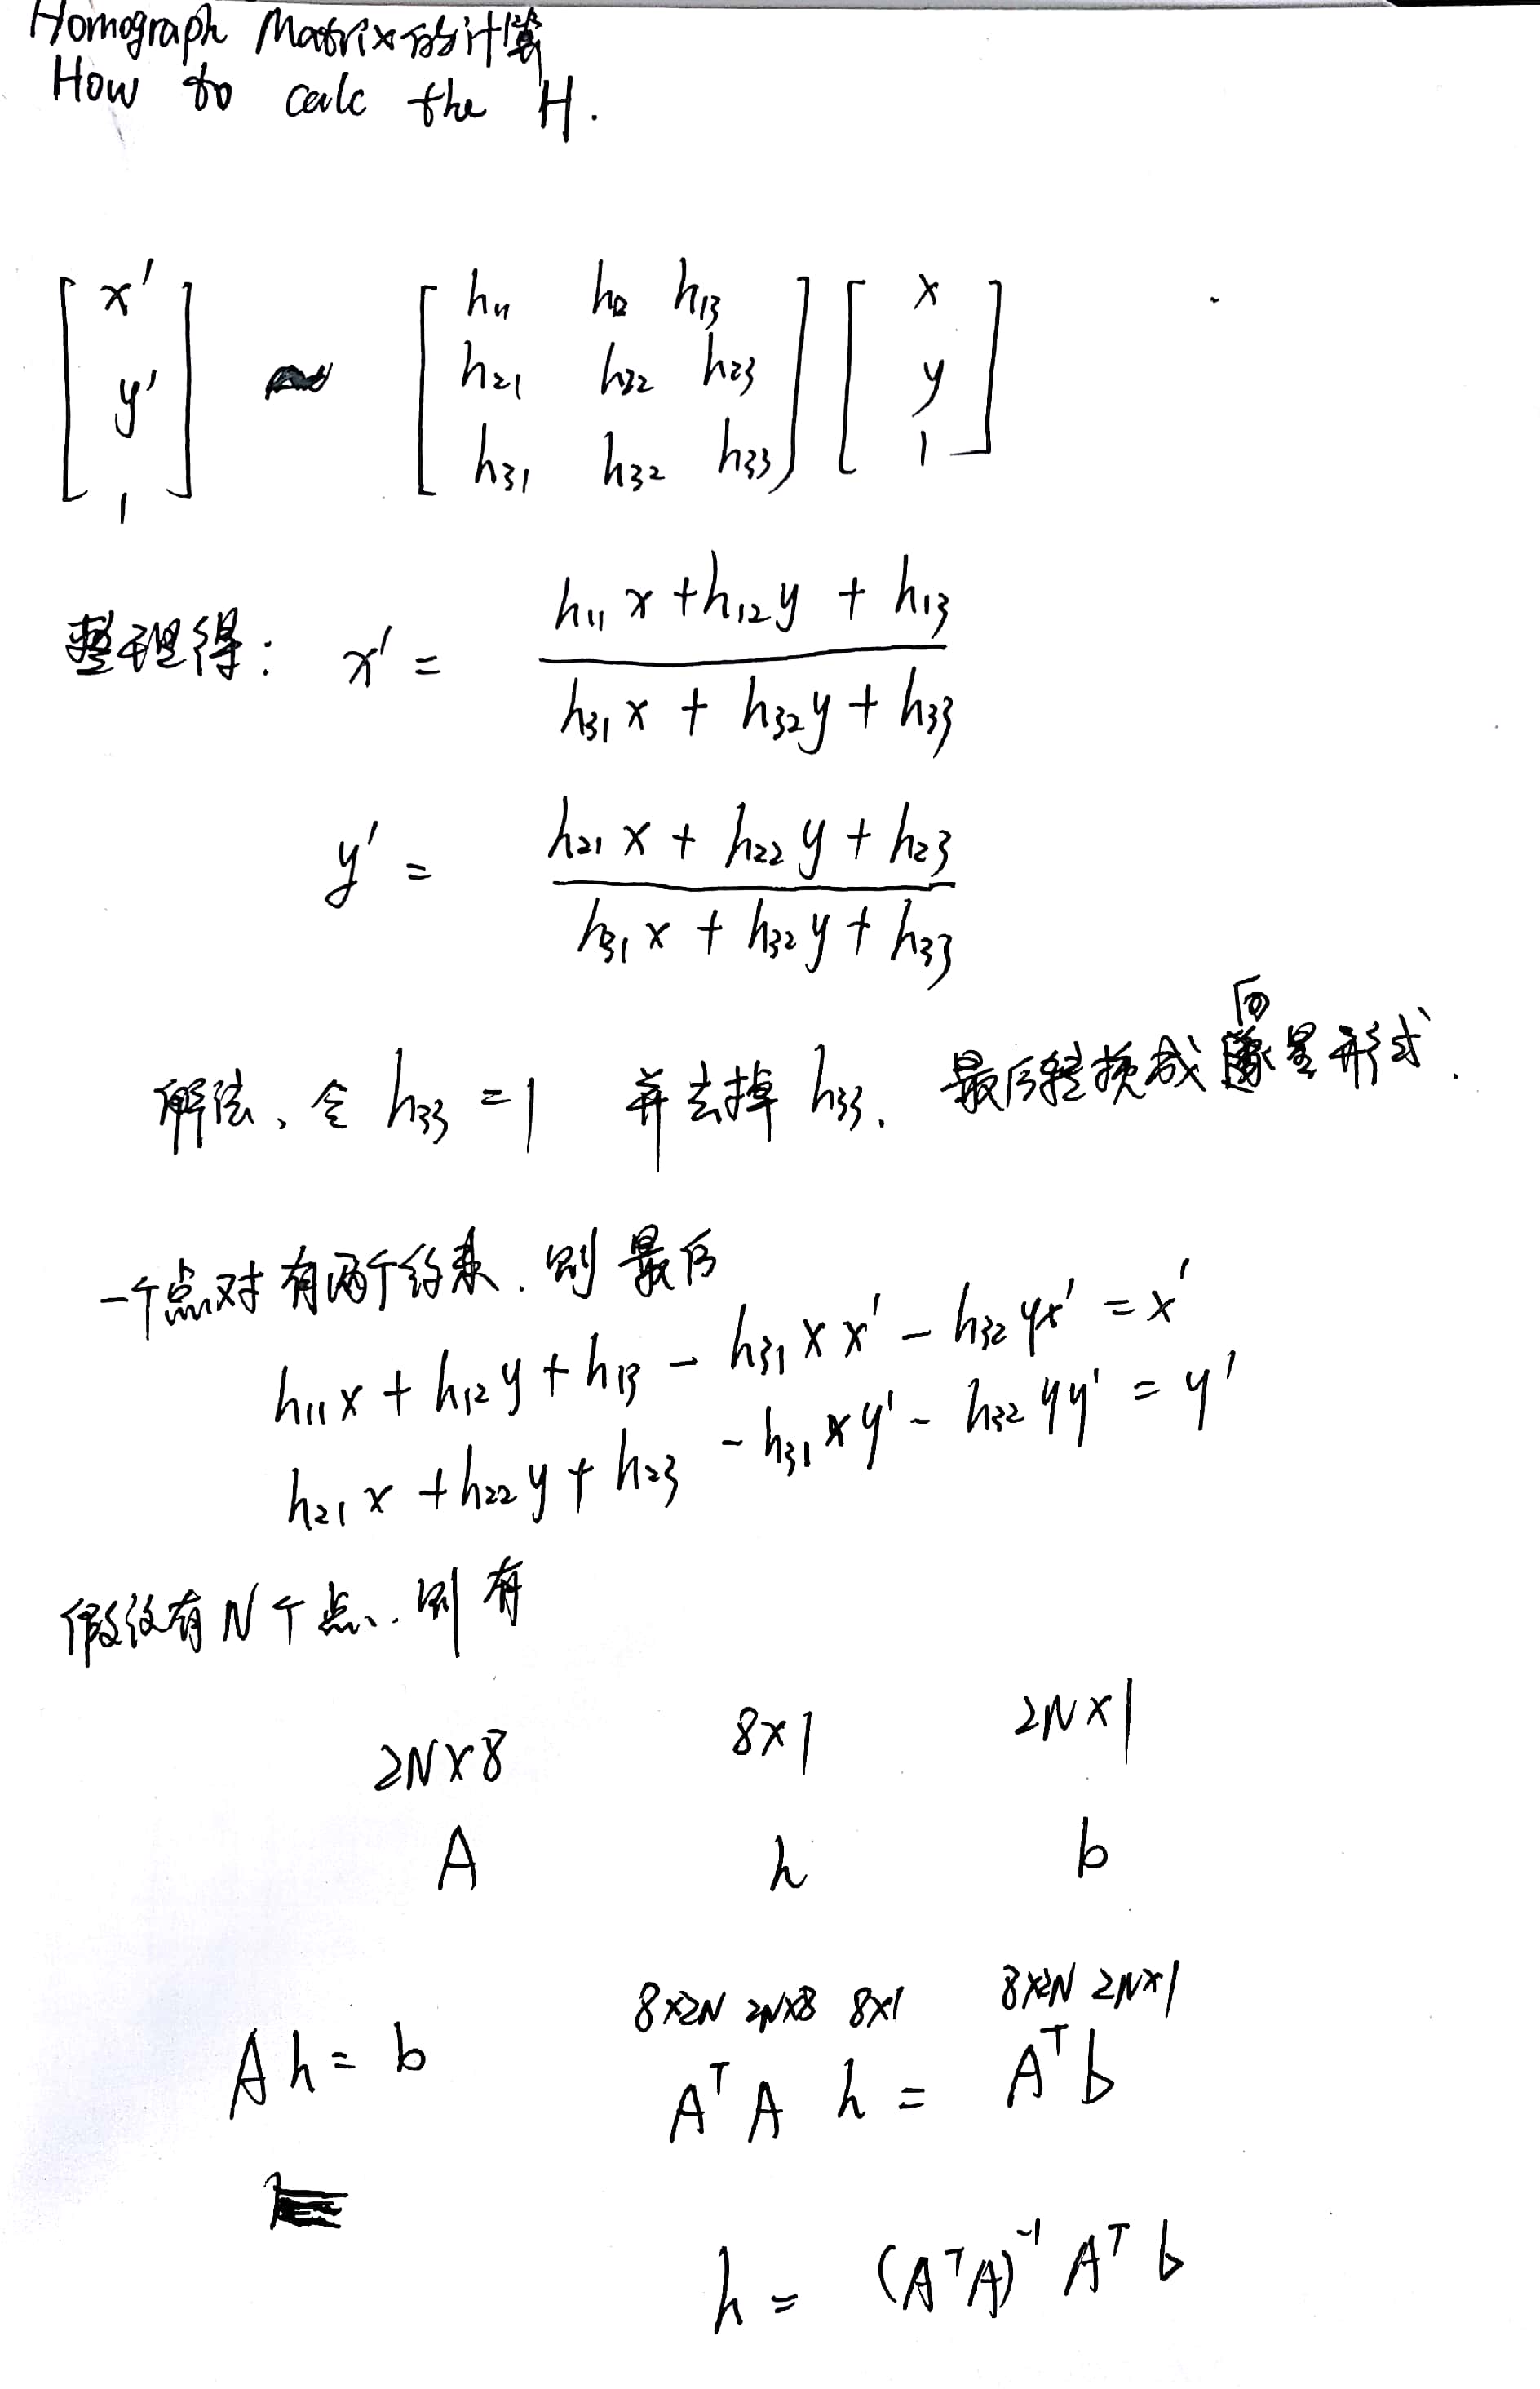 Homograph Matrix的计算
How to calc the H.
[x' y' 1] ~ [h11 h12 h13 h21 h22 h23 h31 h32 h33] [x y 1]
整理得: x' = (h11 x + h12 y + h13) / (h31 x + h32 y + h33)
y' = (h21 x + h22 y + h23) / (h31 x + h32 y + h33)
解法、令 h33 = 1 并去掉 h33. 最后转换成向量形式.
一个点对有两个约束. 则最后
h11x + h12y + h13 - h31xx' - h32yx' = x'
h21x + h22y + h23 - h31xy' - h32yy' = y'
假设有N个点、则有
2N×8 8×1 2N×1
A h b
8×2N 2N×8 8×1 8×2N 2N×1
Ah = b A^T A h = A^T b
h = (A^T A)^-1 A^T b